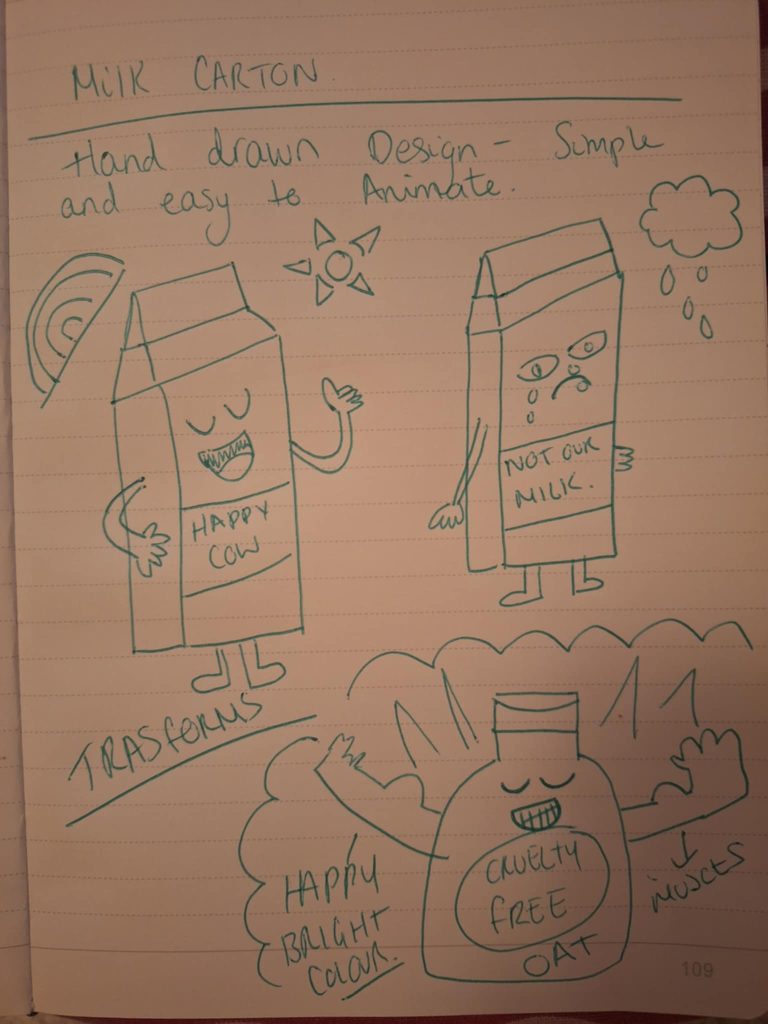 MilK CARTON
Hand drawn Design - Simple
and easy to Animate.
HAPPY
COW
NOT OUR
MILK.
TRASFORMS
HAPPY
BRIGHT
COLOUR.
CRUELTY
FREE
OAT
MUSCLES
109